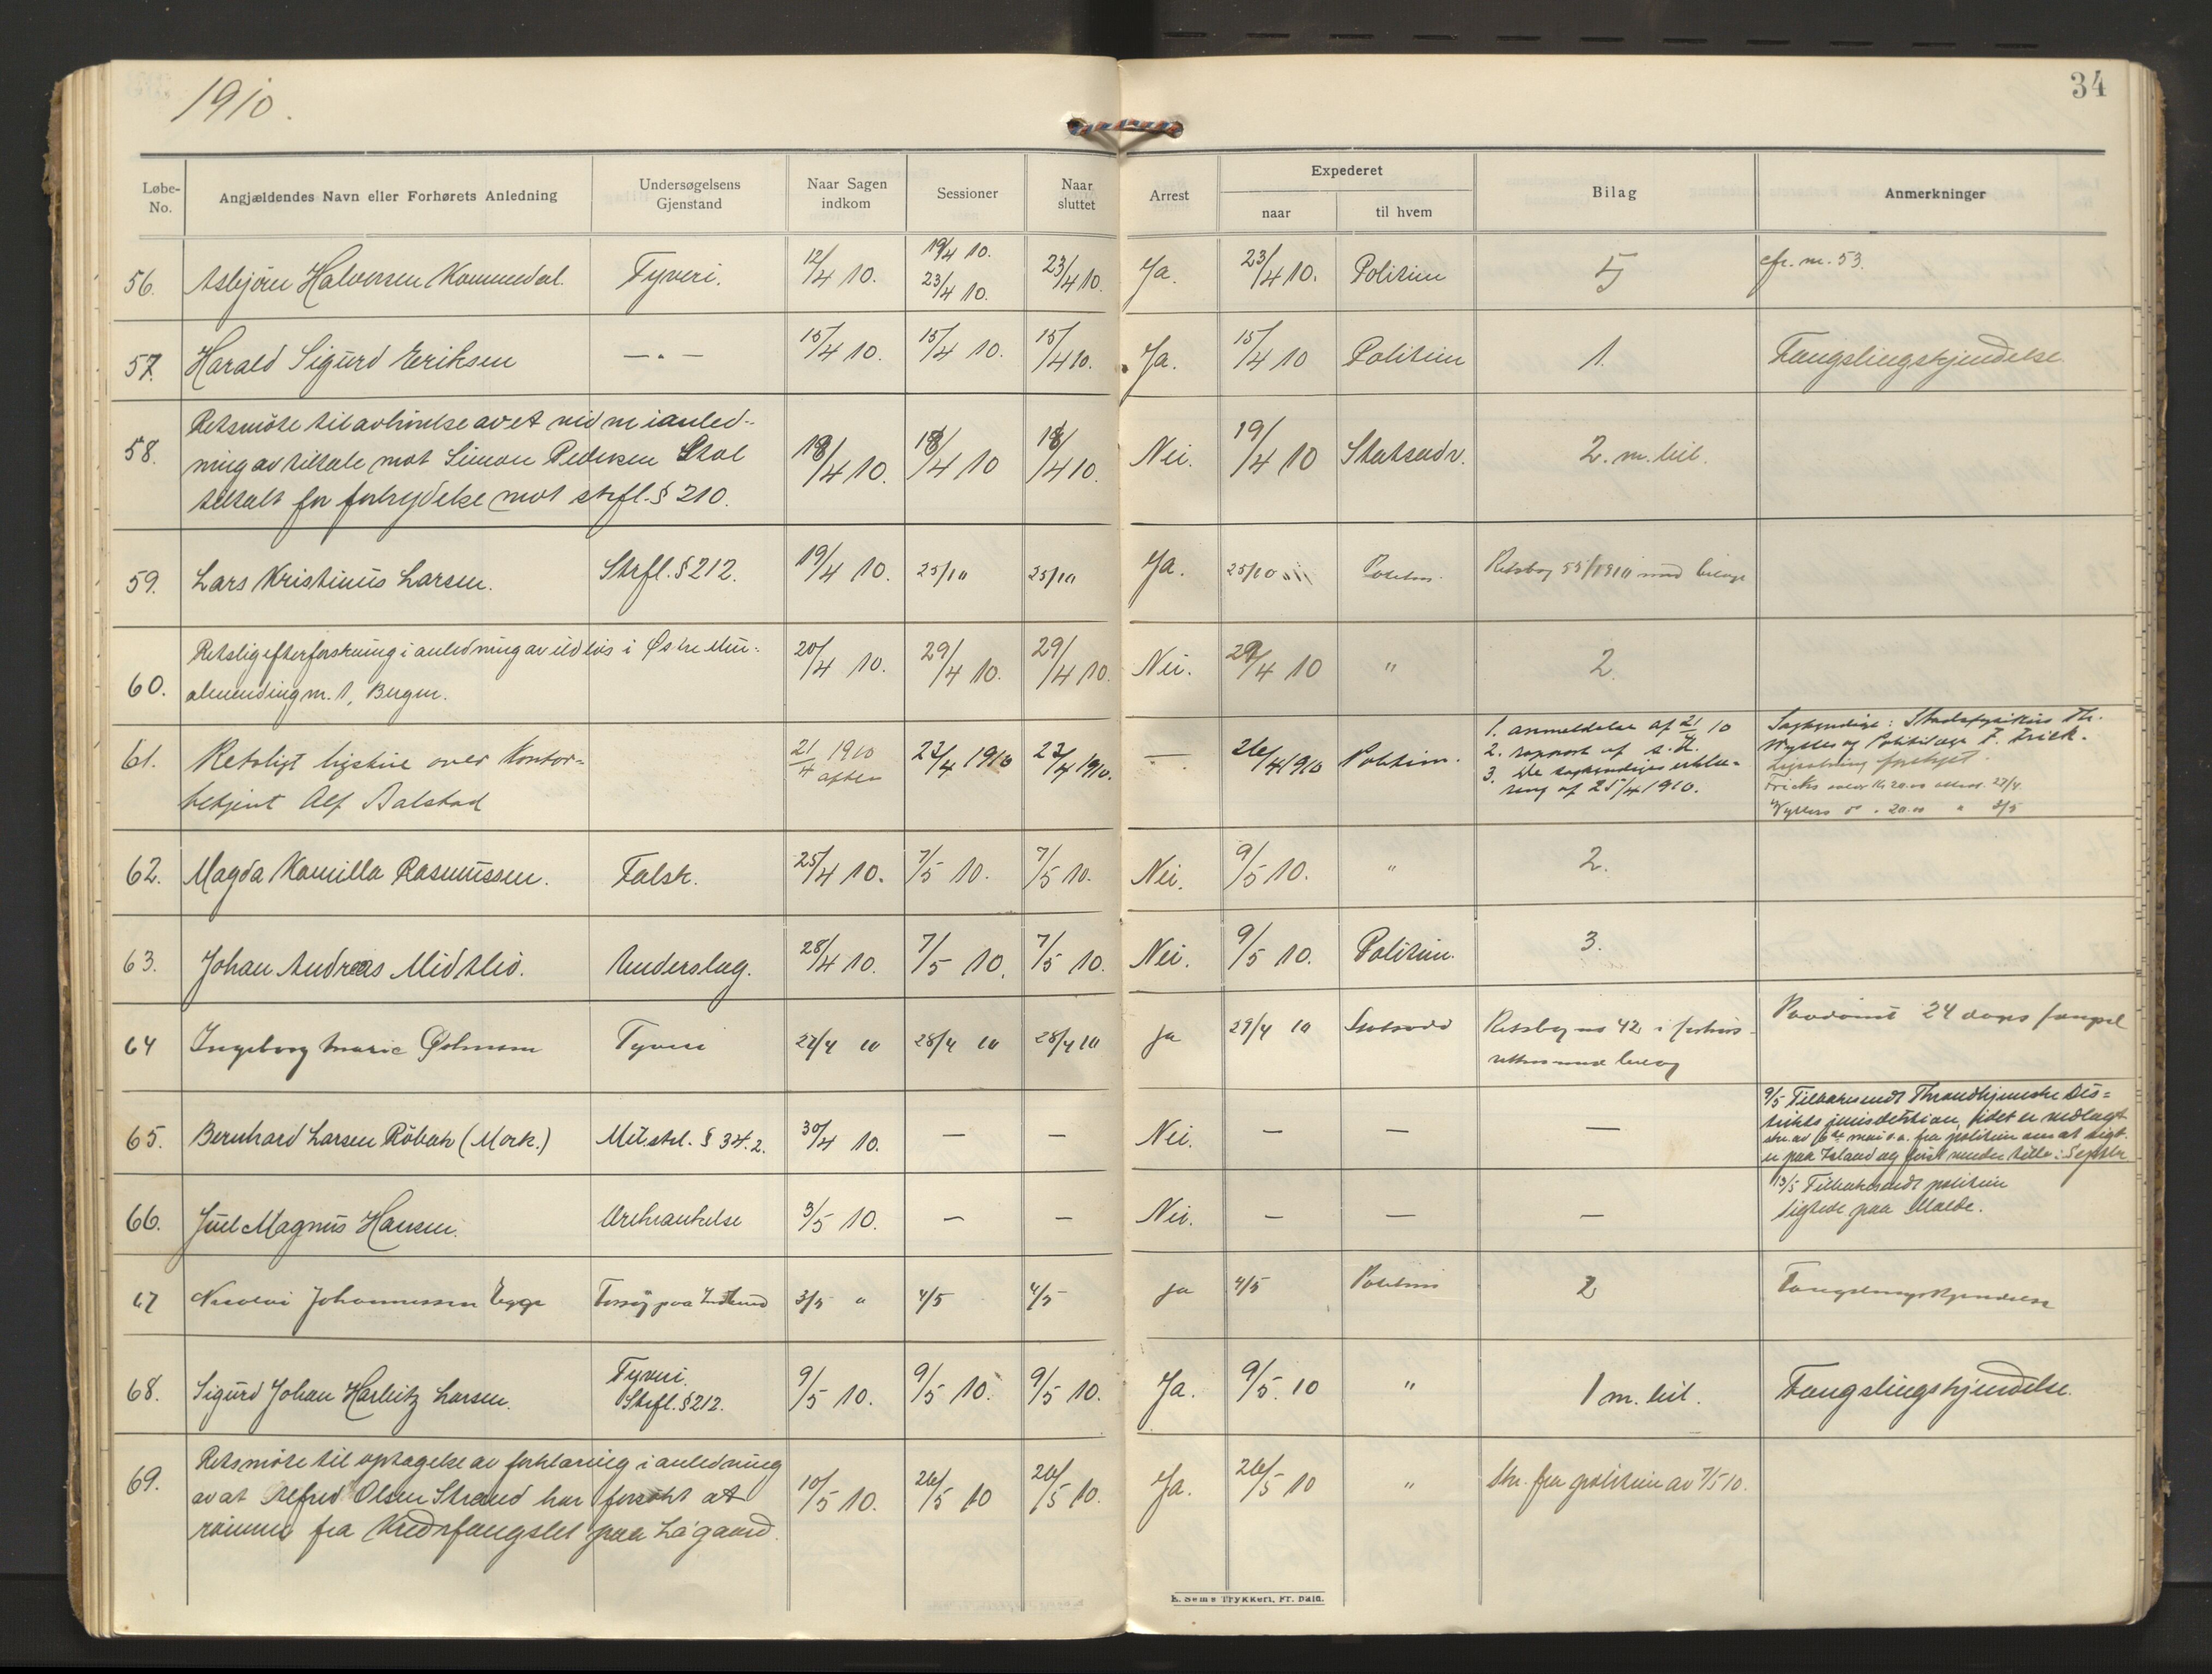 1910.
34
Løbe-No.
Angjældendes Navn eller Forhørets Anledning
Undersøgelsens Gjenstand
Naar Sagen indkom
Sessioner
Naar sluttet
Arrest
Expederet
naar
til hvem
Bilag
Anmerkninger
56. Asbjörn Halvorsen Kommedal. Tyveri. 12/4 10. 19/4 10. 23/4 10. 23/4 10. Ja. 23/4 10. Politiet 5 cfr. nr. 53.
57. Harald Sigurd Eriksen —〃— 15/4 10. 15/4 10. 15/4 10. Ja. 15/4 10 Politiet 1. Fængslingskjendelse
58. Retsmöte til avhörelse av et vidne i anled-
ning av tiltale mot Simon Pedersen Stol
tiltalt for forbrydelse mot strfl. § 210. 18/4 10. 18/4 10 18/4 10. Nei. 19/4 10 Statsadv. 2. m. bil.
59. Lars Kristinus Larsen. Strfl. § 212. 19/4 10. 25/10 25/10 Ja. 25/10 Politiet. Retsbog 55/1910 med bilage
60. Retslig efterforskning i anledning av ildlös i Østre Mur-
almending nr. 1, Bergen. 20/4 10. 29/4 10. 29/4 10. Nei. 29/4 10 〃 2.
61. Retsligt ligskue over Kontor-
betjent Alf Aalstad 21/4 1910 aften 23/4 1910 23/4 1910. — 26/4 1910 Politiet.
1. anmeldelse af 21/4 10
2. rapport af s. d.
3. De sagkyndiges erklæ-
ring af 25/4 1910.
Sagkyndige: Stadsfysikus Kr.
og Politilæge F. Frick.
Ligaabning foretaget.
62. Magda Kamilla Rasmussen. Falsk. 25/4 10. 7/5 10. 7/5 10. Nei. 9/5 10. 〃 2.
63. Johan Andreas Midtlid. Underslag. 28/4 10. 7/5 10. 7/5 10. Nei. 9/5 10. Politiet. 3.
64 Ingeborg Marie Tyveri 28/4 10 28/4 10 Ja 29/4 10 Statsadv Retsbog no 42 i forhörs-
retten med bilag Paadömt 24 dages fængsel
65. Bernhard Larsen Röbek (Mork.) Mil. strl. § 34. 2. 30/4 10. — — Nei. — — —
9/5 Tilbakesendt Throndhjemske Dis-
trikts jurisdiktion, idet er vedlagt
skr. av 6te mai d. a. fra politiet om at sigt.
er paa Island og först vender tilb. i Septbr
66. Juel Magnus Hansen. Ærekrænkelse 3/5 10. — — Nei. — — —
13/5 Tilbakesendt politiet
sigtede paa Malde.
67 Nicolai Johannessen Egge Forsøg paa 3/5 〃 4/5 4/5 Ja 4/5 Politiet 2 Fængslingskjendelse
68. Sigurd Johan Harbitz Larsen. Tyveri. Strfl. § 212. 9/5 10. 9/5 10. 9/5 10. Ja. 9/5. 10 〃 1 m. bil. Fængslingskjendelse.
69. Retsmöte til optagelse av forklaring i anledning
av at Alfred Olsen Strand har forsökt at
römme fra Kredsfængslet paa Lagaard. 10/5 10. 26/5 10 26/5 10. Ja. 26/5 10 〃 Skr. fra politiet av 7/5 10.
E. Sems Trykkeri, Fr. hald.